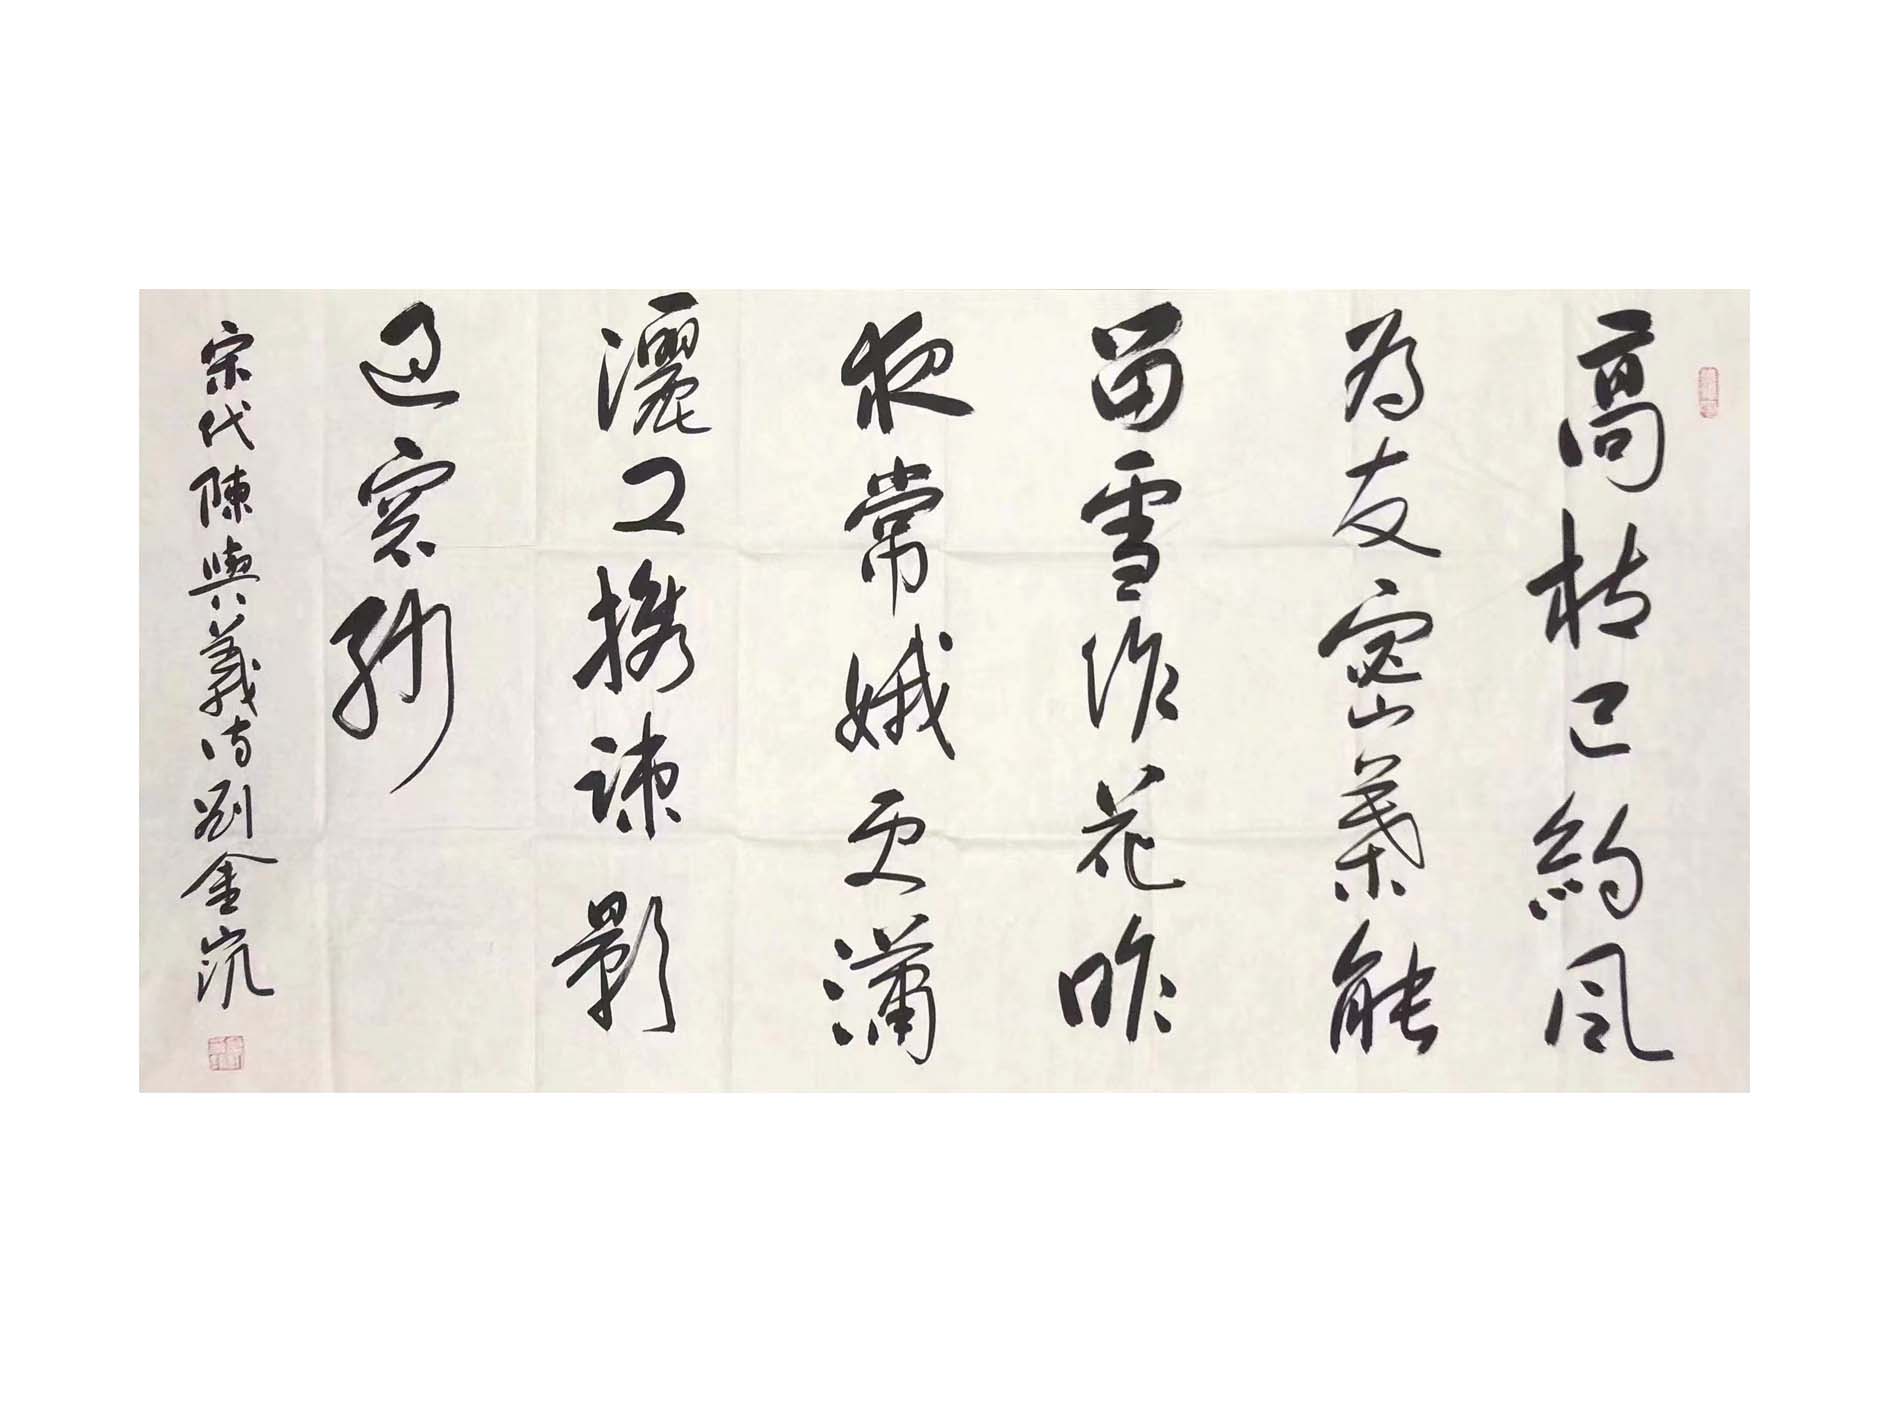 高枝已約風
為友密葉能
留雪作花昨
夜常娥更瀟
灑又攜疎影
過窓紗
宋代陳與義詩劉金流